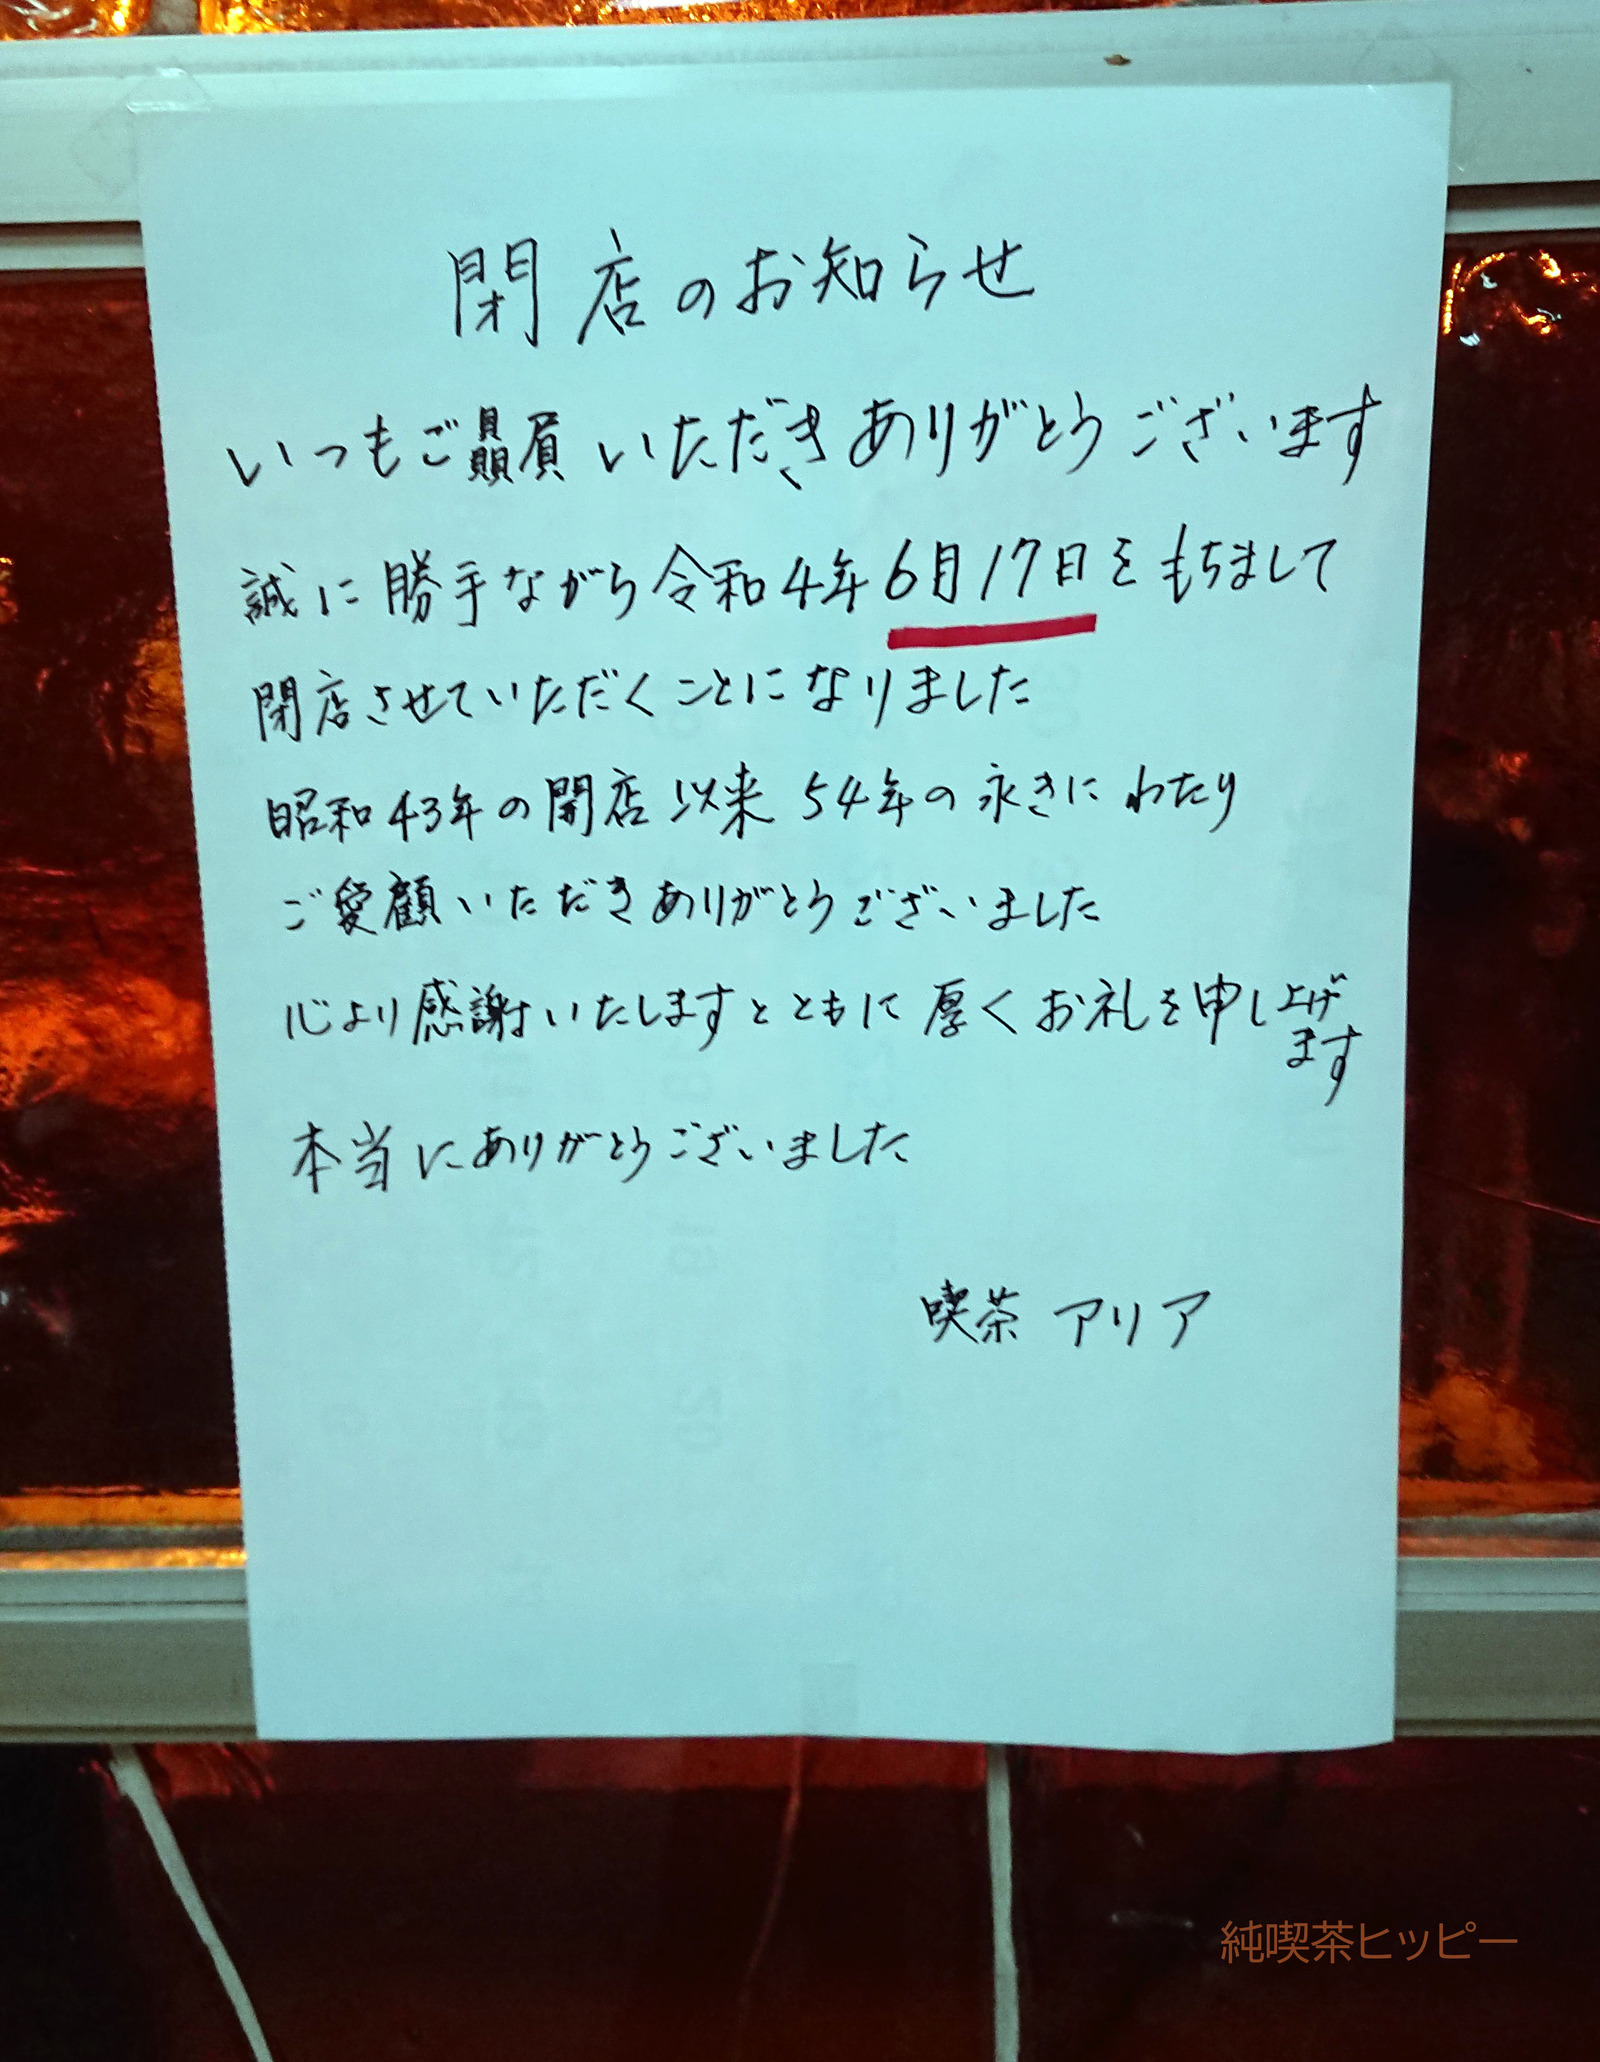 閉店のお知らせ
いつもご贔屓いただきありがとうございます
誠に勝手ながら令和4年6月17日をもちまして
閉店させていただくことになりました
昭和43年の開店以来54年の永きにわたり
ご愛顧いただきありがとうございました
心より感謝いたしますとともに厚くお礼を申し上げ
ます
本当にありがとうございました
喫茶 アリア
純喫茶ヒッピー